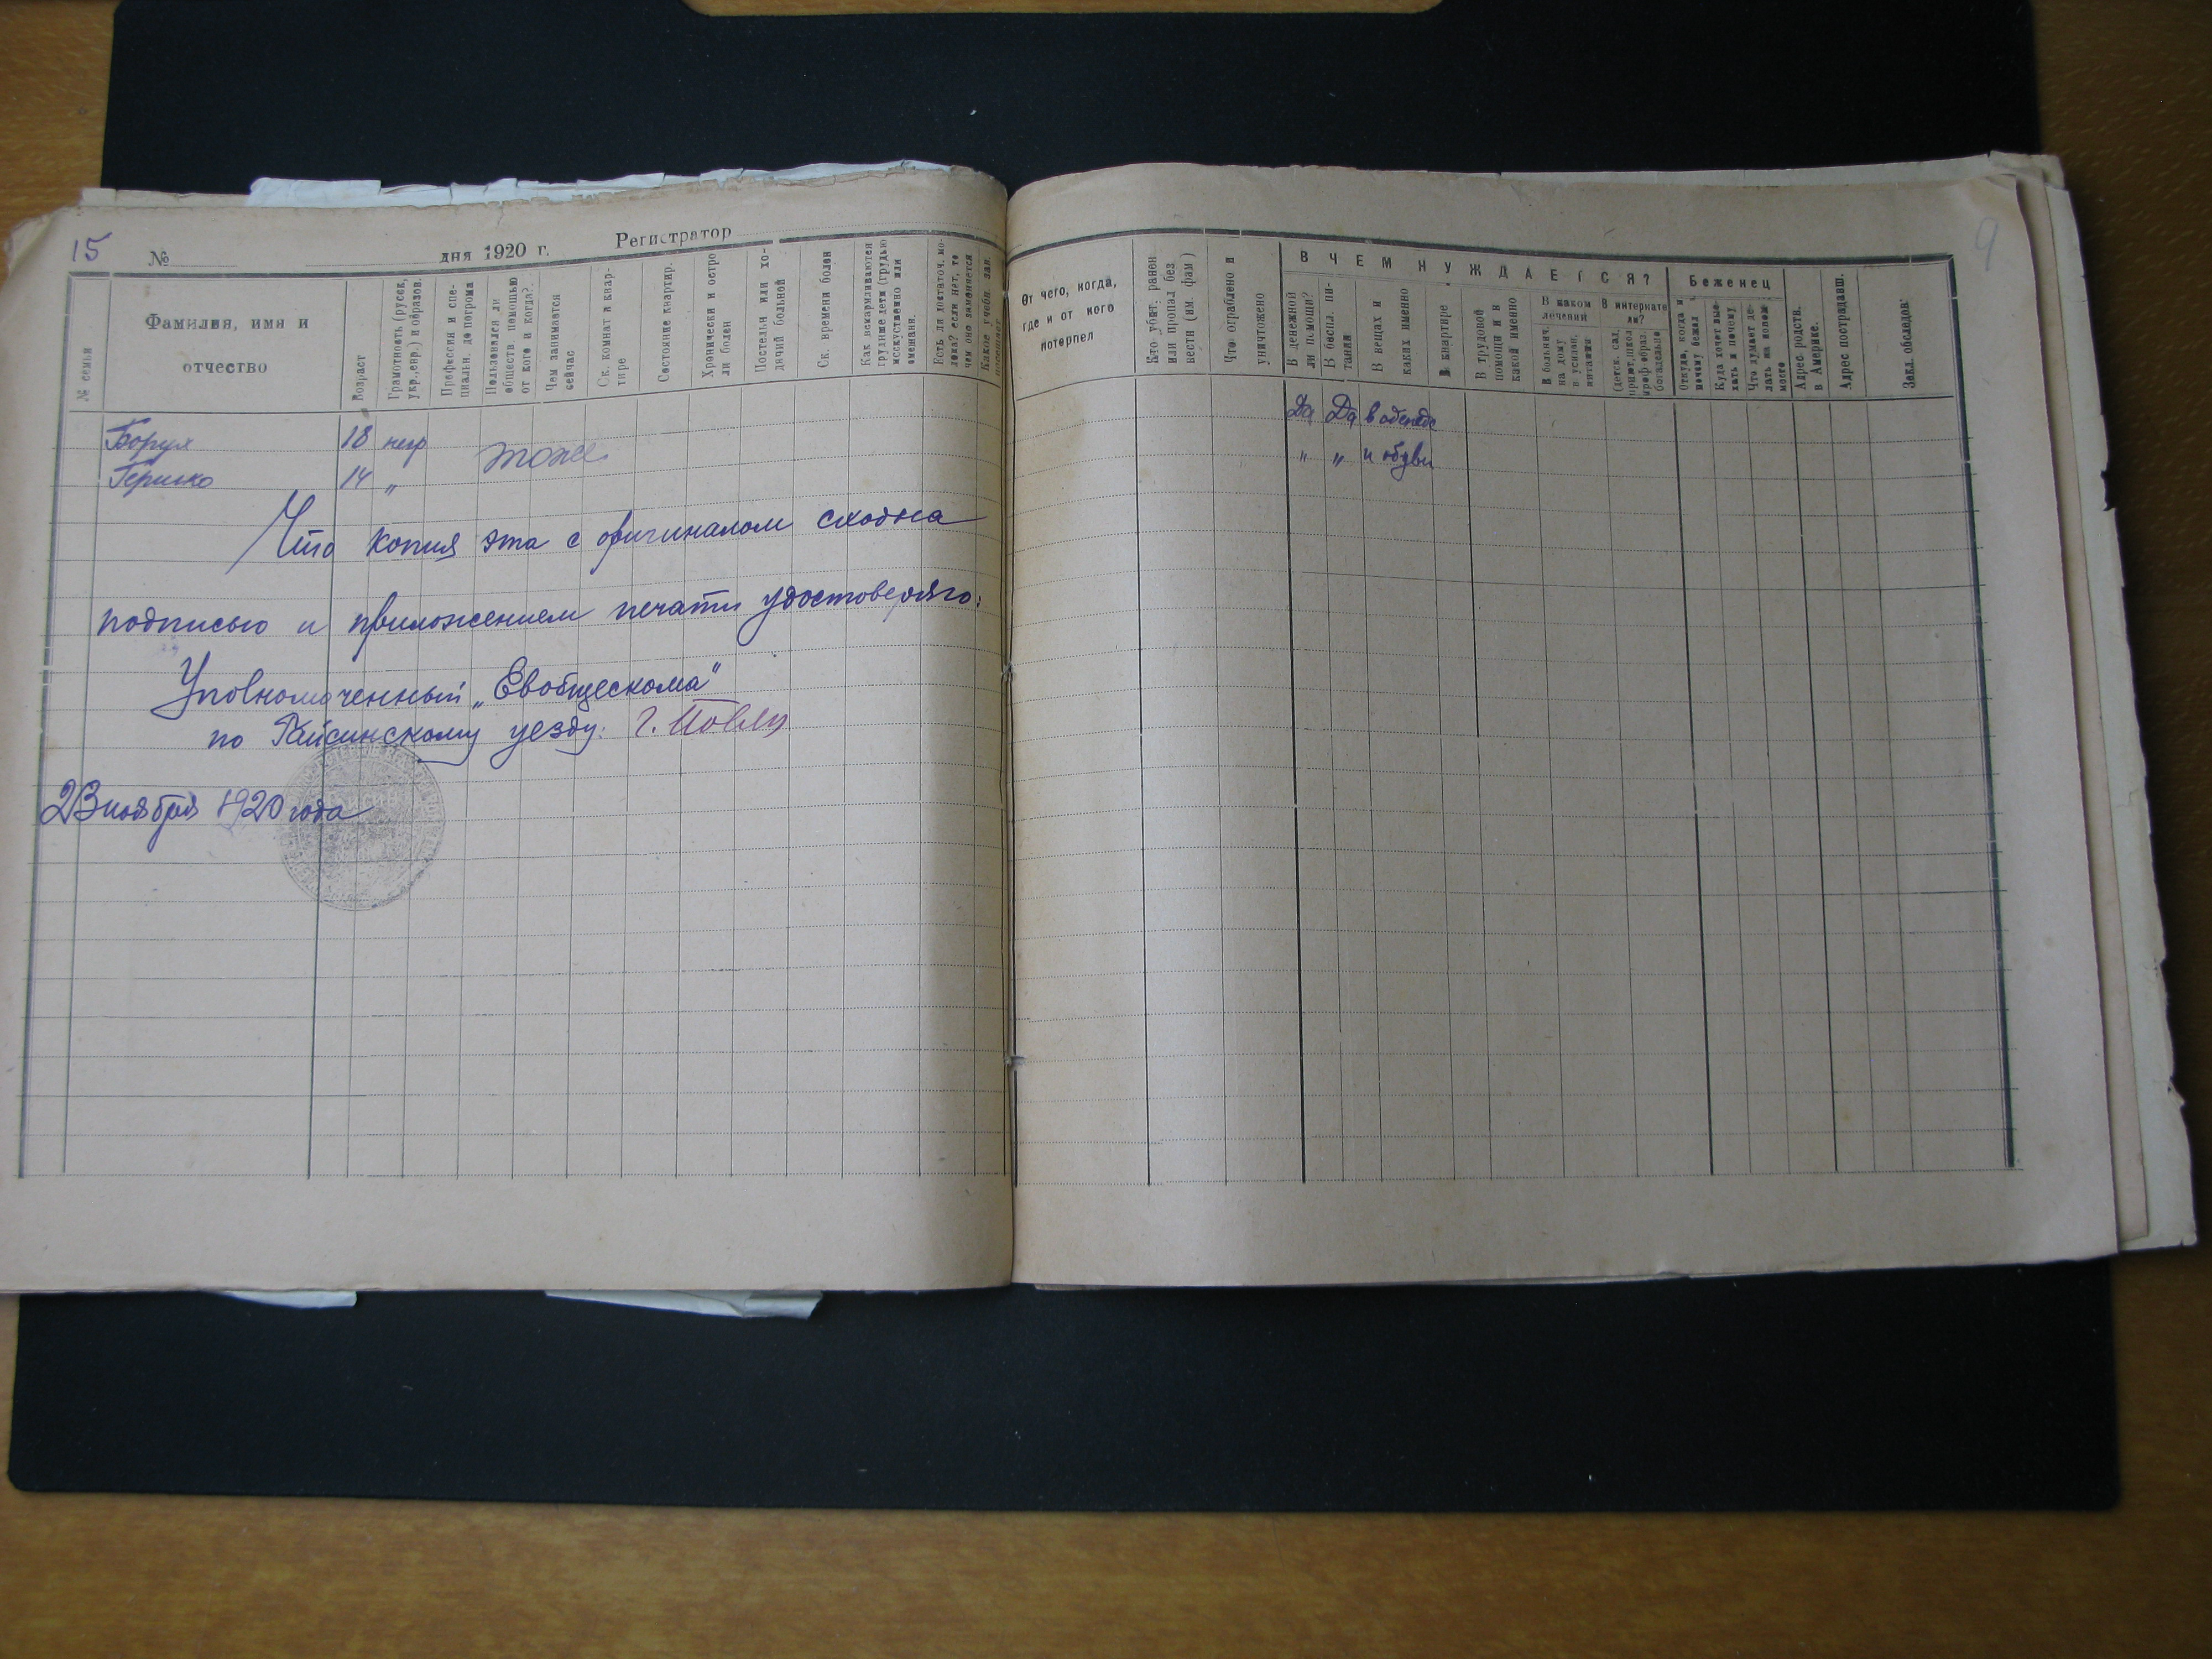 15
№ дня 1920 г. Регистратор
№ семьи
Фамилия, имя и
отчество
Возраст
Грамотность (русск.,
укр., евр.) и образов.
Профессия и спе-
циальн. до погрома
Пользовался ли
обществ помощью
от кого и когда?
Чем занимается
сейчас
Ск. комнат в квар-
тире
Состояние квартир.
Хронически и остро
ли болен
Постельн или хо-
дячий больной
Ск. времени болен
Как вскармливаются
грудные дети (грудью
искусственно или
смешанн.
Есть ли достаточ. мо-
лока? если нет, то
чем оно заменяется
Какое учебн. зав.
посещает
Борух 18 негр
тоже
Гершко 14 „
Что копия эта с оригиналом сходна
подписью и приложением печати удостоверяю:
Уполномоченный „Евобщескома“
по Гайсинскому уезду: Г.
23 ноября 1920 года
9
От чего, когда,
где и от кого
потерпел
Кто убит, ранен
или пропал без
вести (им. фам)
Что ограблено и
уничтожено
В ЧЕМ НУЖДАЕТСЯ?
В денежной
ли помощи?
В беспл. пи-
тании
В вещах и
каких именно
В квартире
В трудовой
помощи и в
какой именно
В каком
лечении
В больнич.
на дому
в усилен.
питании
В интернате
ли?
(детск. сад,
приют, школ
проф образ.
богадельне
Беженец
Откуда, когда и
почему бежал
Куда хочет вые-
хать и почему
Что думает де-
лать на новом
месте
Адрес родств.
в Америке.
Адрес пострадавш.
Закл. обследов.
Да Да в одежде
„ „ и обуви